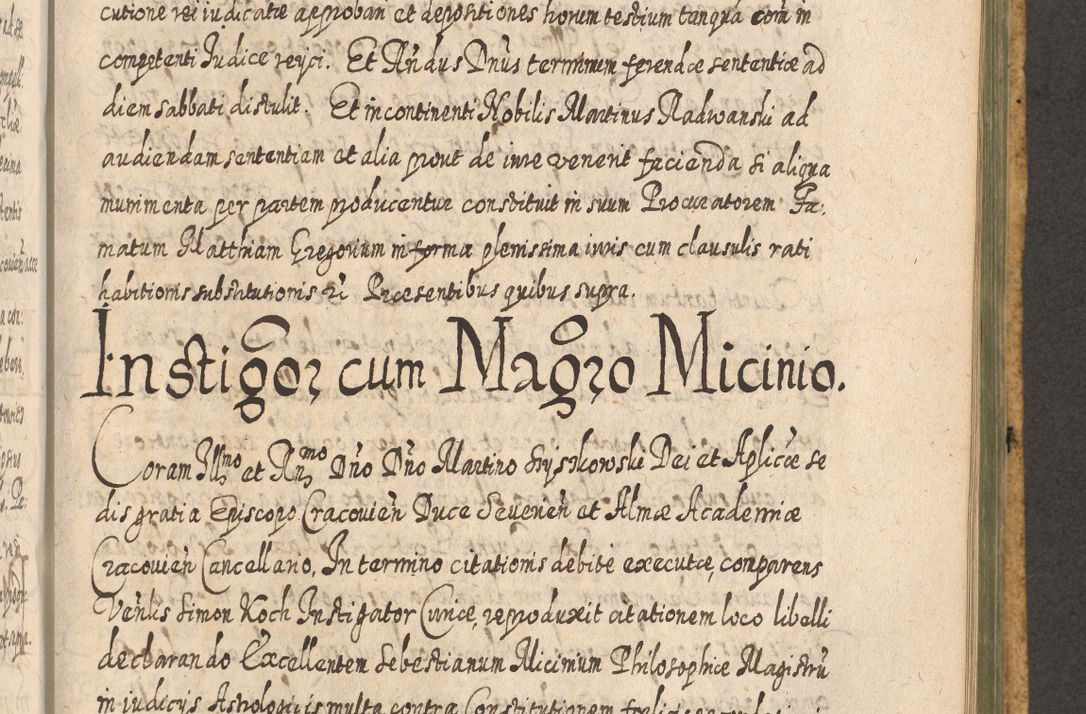 cutione rei iudicatæ approban et depositiones horum testium tanqua com in
competenti Iudice reyci. Et Rndus Dnus terminum ferendæ sententiæ ad
diem sabbati distulit. Et incontinenti Nobilis Martinus Radwanski ad
audiendam sententiam et alia prout de iure venerit facienda si aliqua
munimenta per partem producentur constituit in suum Procuratorem Fa:
matum Matthiam Gregorium in forma plenissima iuris cum clausulis rati
habitionis substitutionis Præsentibus quibus supra.
Instigor cum Magro Micinio.
Coram Illmo et Rnmo Dno Dno Martino Szyszkowski Dei et Aplicæ se
dis gratia Episcopo Cracovien Duce Severien et Almæ Academiæ
Cracovien Cancellario, In termino citationis debite executæ, comparens
Venlis Simon Koch Instigator Curiæ, reproduxit citationem loco libelli
declarando Excellentem Sebestianum Micinium Philosophiæ Magistru
in iudicys Astrologicis multa contra Constitutionem